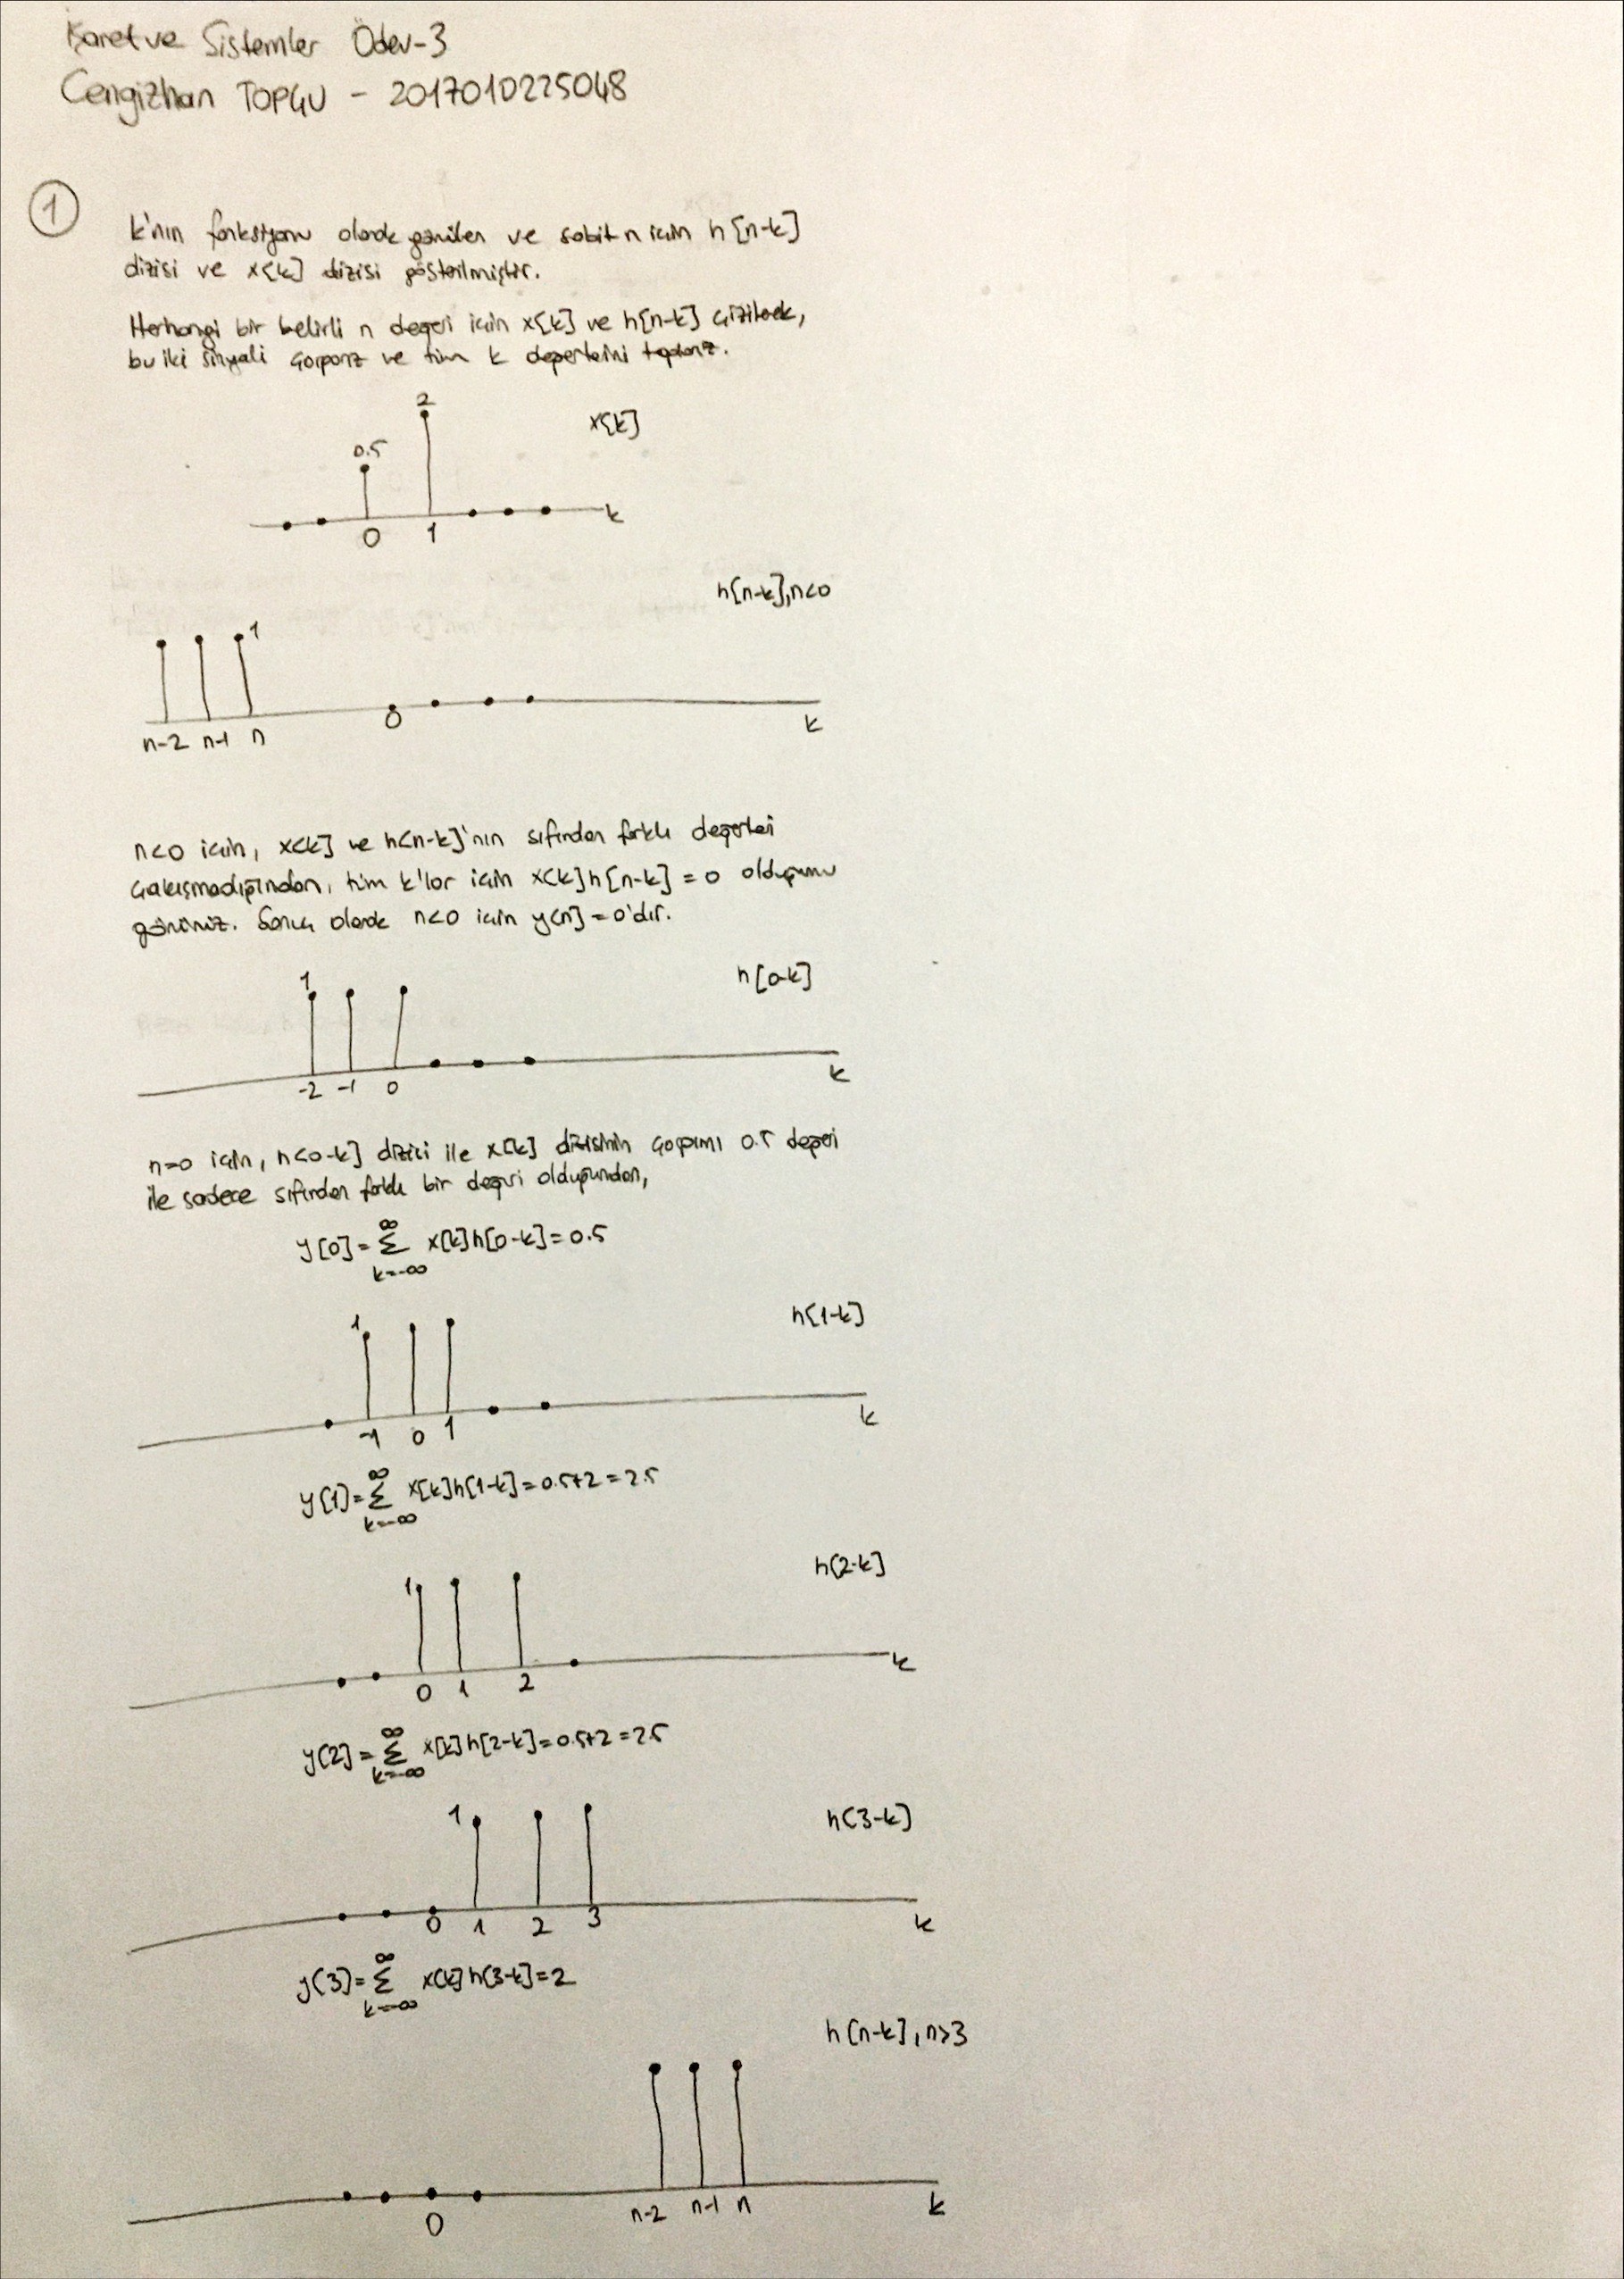 İşaret ve Sistemler Ödev-3
Cengizhan TOPÇU - 2017010225048
1
k'nın fonksiyonu olarak görülen ve sabit n için h[n-k]
dizisi ve x[k] dizisi gösterilmiştir.
Herhangi bir belirli n değeri için x[k] ve h[n-k] çizilerek,
bu iki sinyali çarparız ve tüm k değerlerini toplarız.
2
x[k]
0.5
0 1 k
h[n-k], n<0
1
n-2 n-1 n 0 k
n<0 için, x[k] ve h[n-k]'nın sıfırdan farklı değerleri
çakışmadığından, tüm k'lar için x[k]h[n-k]=0 olduğunu
görürüz. Sonuç olarak n<0 için y[n]=0'dır.
1
h[0-k]
-2 -1 0 k
n=0 için, h[0-k] dizisi ile x[k] dizisinin çarpımı 0.5 değeri
ile sadece sıfırdan farklı bir değeri olduğundan,
y[0]=∞Σk=-∞ x[k]h[0-k]=0.5
1
h[1-k]
-1 0 1 k
y[1]=∞Σk=-∞ x[k]h[1-k]=0.5+2=2.5
1
h[2-k]
0 1 2 k
y[2]=∞Σk=-∞ x[k]h[2-k]=0.5+2=2.5
1
h[3-k]
0 1 2 3 k
y[3]=∞Σk=-∞ x[k]h[3-k]=2
h[n-k], n>3
0 n-2 n-1 n k